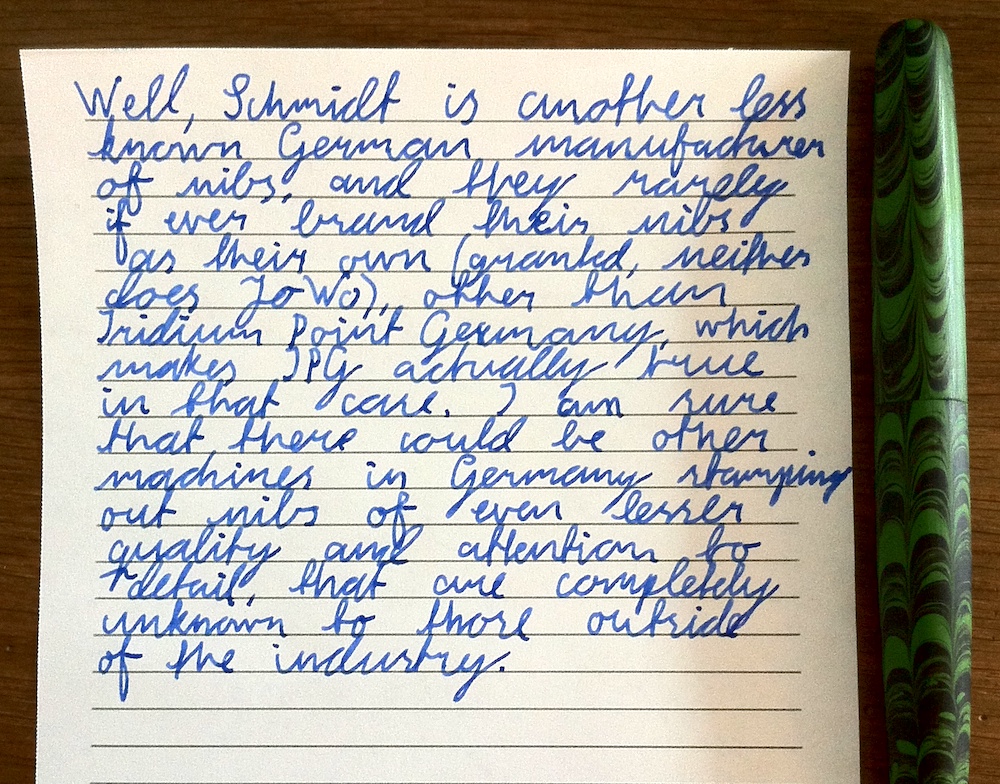 Well, Schmidt is another less
known German manufacturer
of nibs, and they rarely
if ever brand their nibs
as their own (granted, neither
does JoWo), other than
Iridium Point Germany, which
makes IPG actually true
in that case. I am sure
that there could be other
machines in Germany stamping
out nibs of even lesser
quality and attention to
detail, that are completely
unknown to those outside
of the industry.